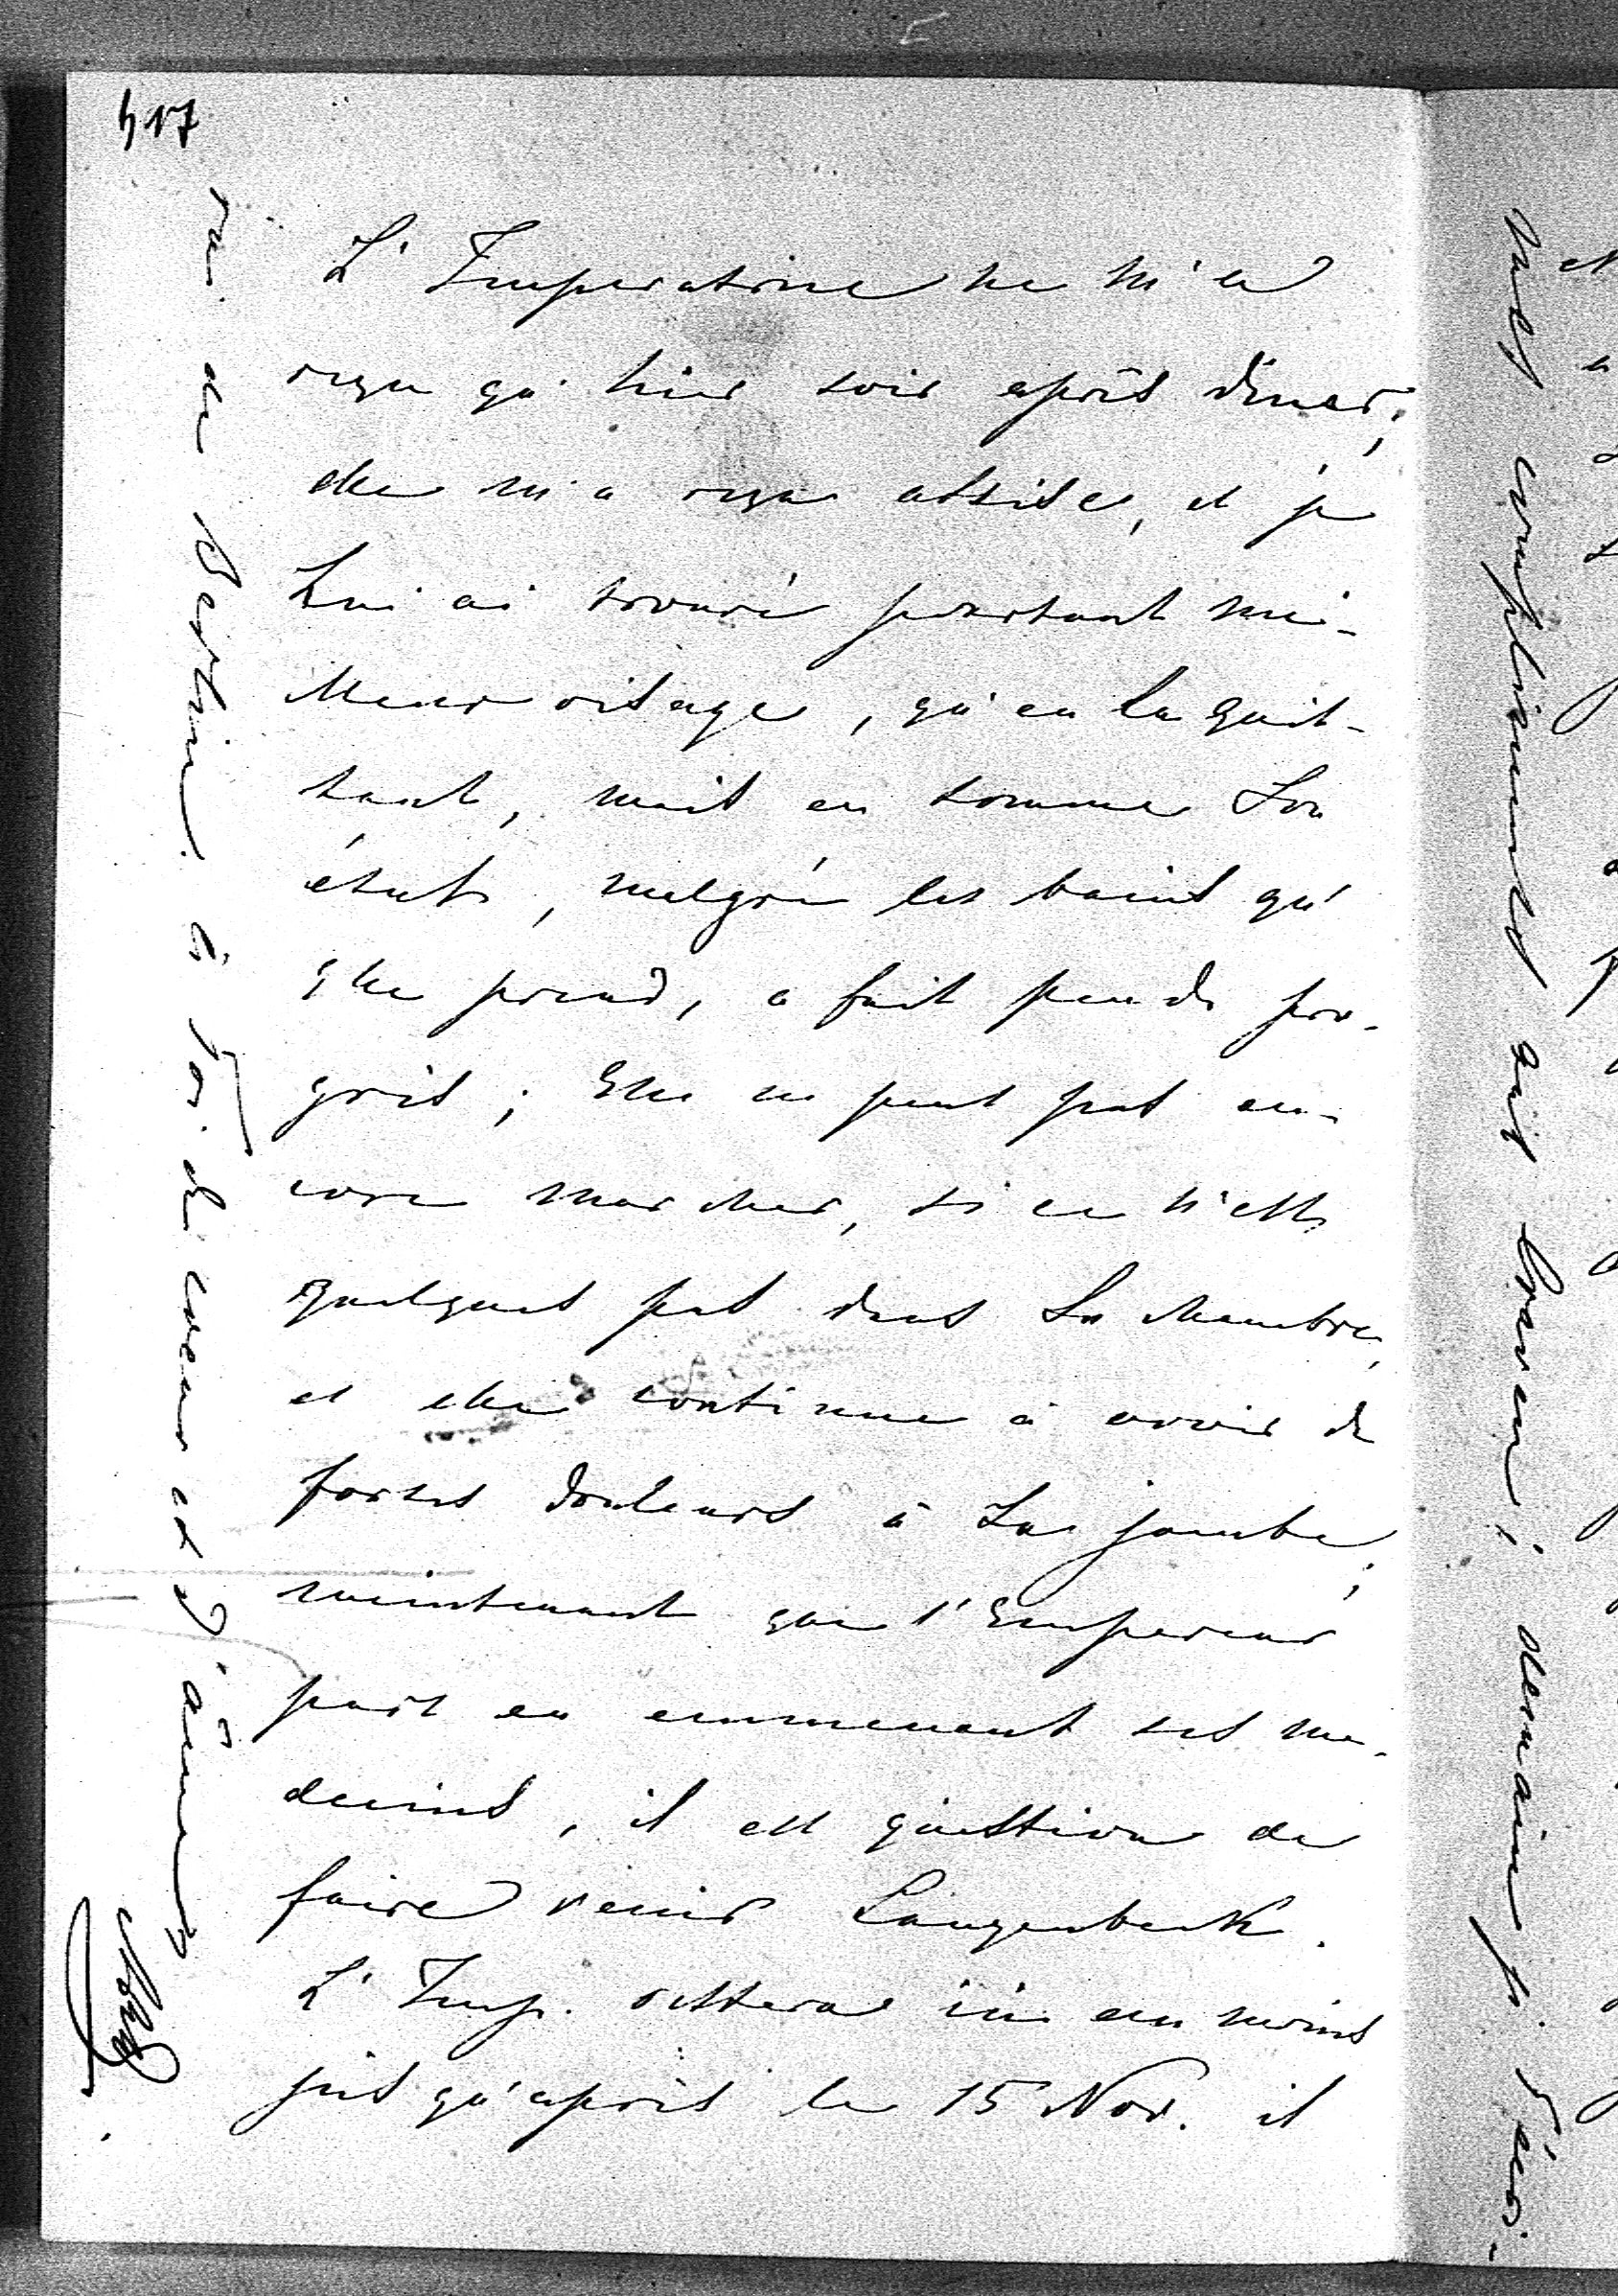 417
L'Imperatrice ne m'a
reçu qu'hier soir après dîner;
elle m'a reçu assise, et je
Lui ai trouvé pourtant mei-
lleur visage, qu'en la quit-
tant, mais en somme Son
état, malgré les bains qu'
Elle prend, a fait peu de pro-
grès; Elle ne peut pas en-
core marcher, si ce n'est
quelques pas dans Sa chambre,
et elle continue à avoir de
fortes douleurs à La jambe;
maintenant que l'Empereur
part en emmenant ses me-
decins, il est question de
faire venir Langenbeck.
L'Imp. restera ici au moins
jusqu'après le 15 Nov. il
rai de Berlin. à Toi de coeur et d'âme
mes compliments qui bravem; demain p. Fécr.-